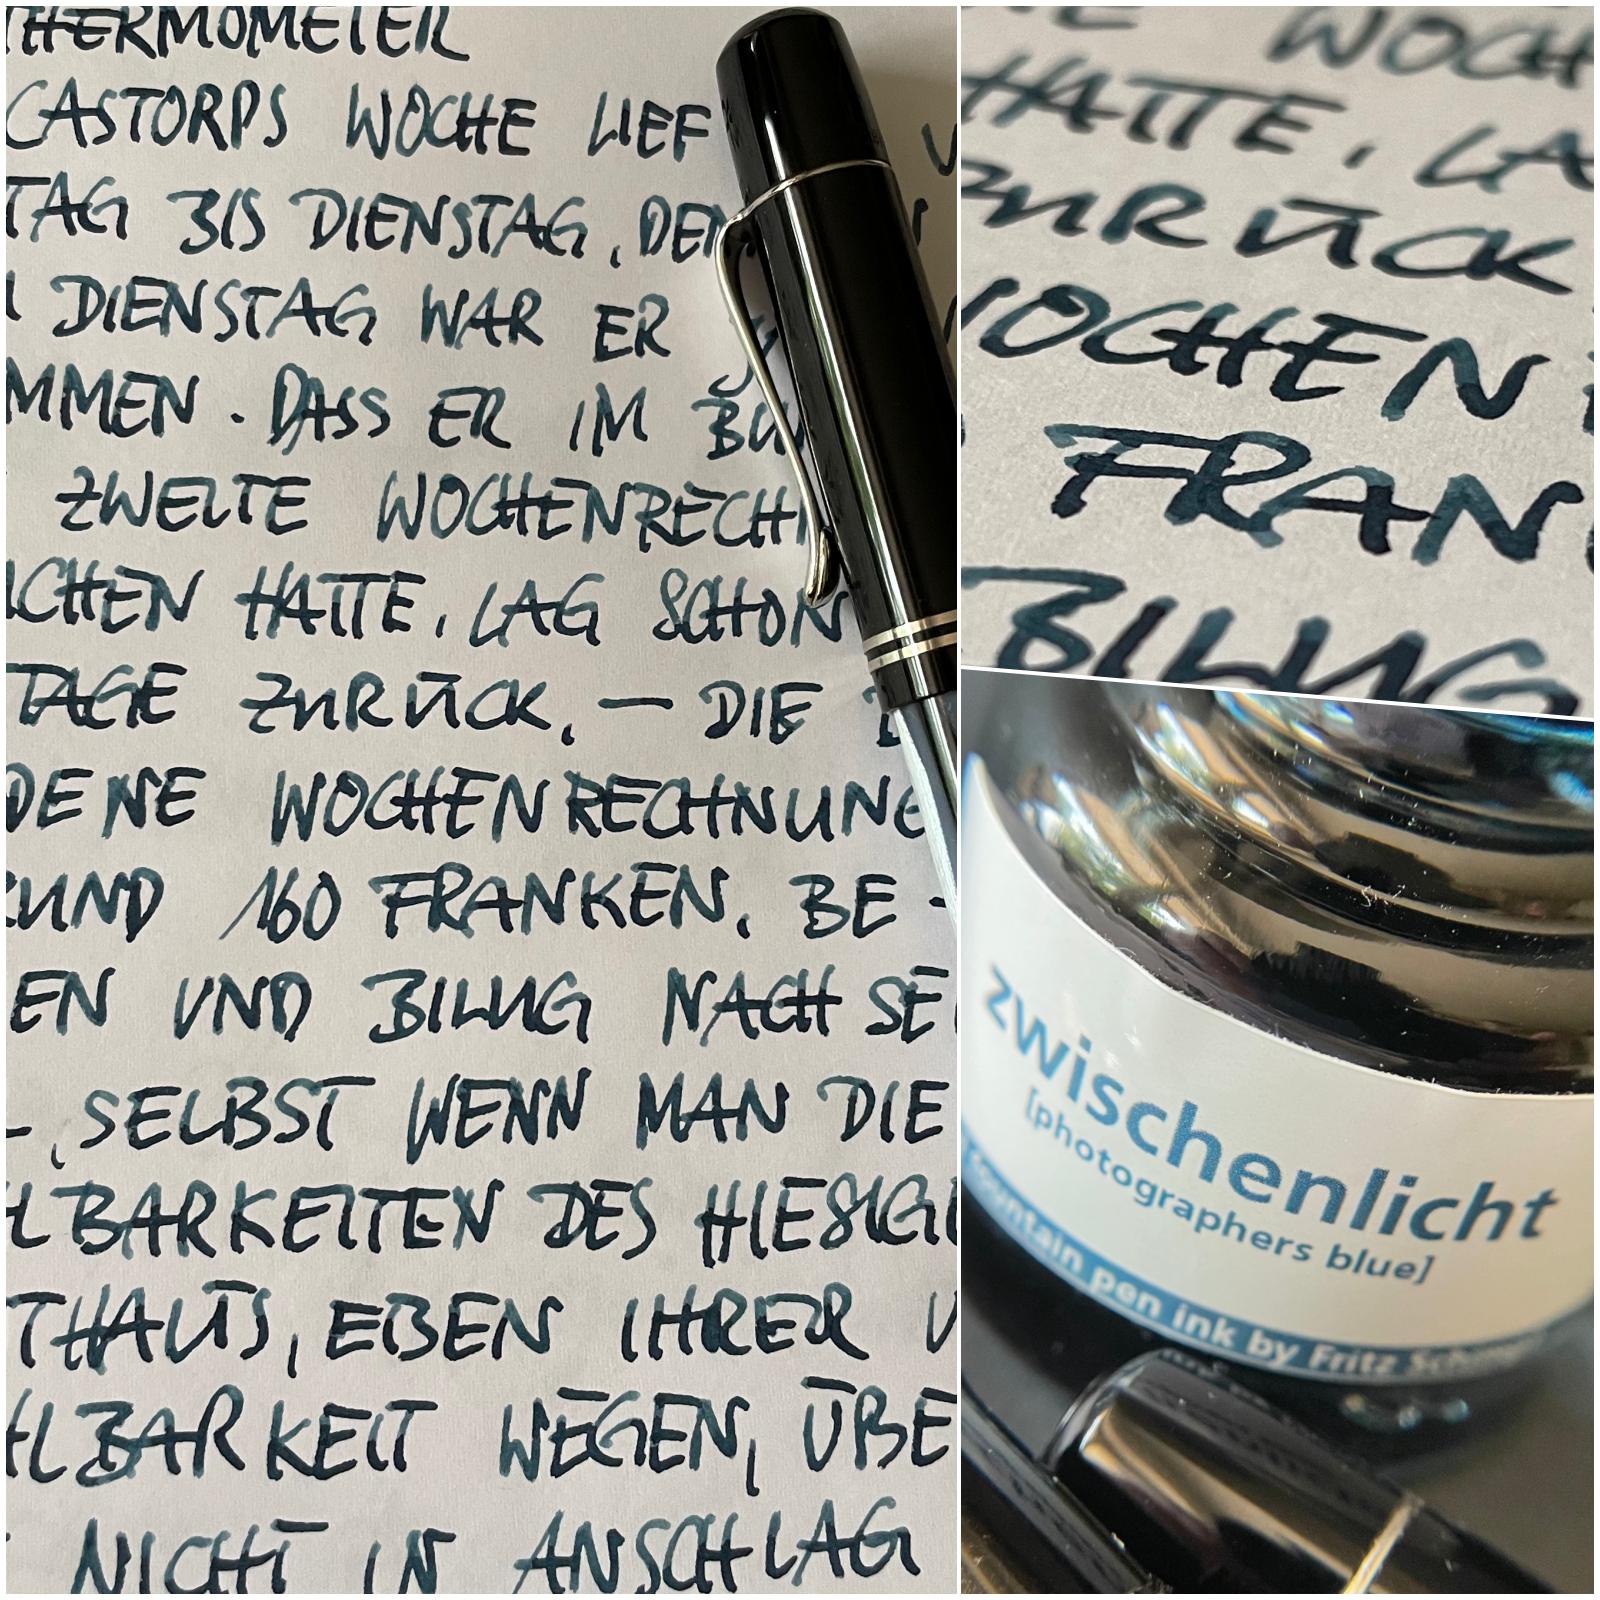 THERMOMETER
CASTORPS WOCHE LIEF
TAG BIS DIENSTAG, DEN
DIENSTAG WAR ER
MMEN. DASS ER IM
ZWEITE WOCHENRECH
CHEN HATTE, LAG SCHON
TAGE ZURÜCK, — DIE
DENE WOCHENRECHNUNG
RUND 160 FRANKEN. BE-
EN UND BILLIG NACH SE
, SELBST WENN MAN DIE
LBARKEITEN DES HIESIG
THALTS, EBEN IHRER
HLBARKEIT WEGEN, ÜBE
NICHT IN ANSCHLAG
WOCH
HATTE, LA
ZURÜCK
WOCHEN
FRAN
BILLIG
zwischenlicht
[photographers blue]
fountain pen ink by Fritz